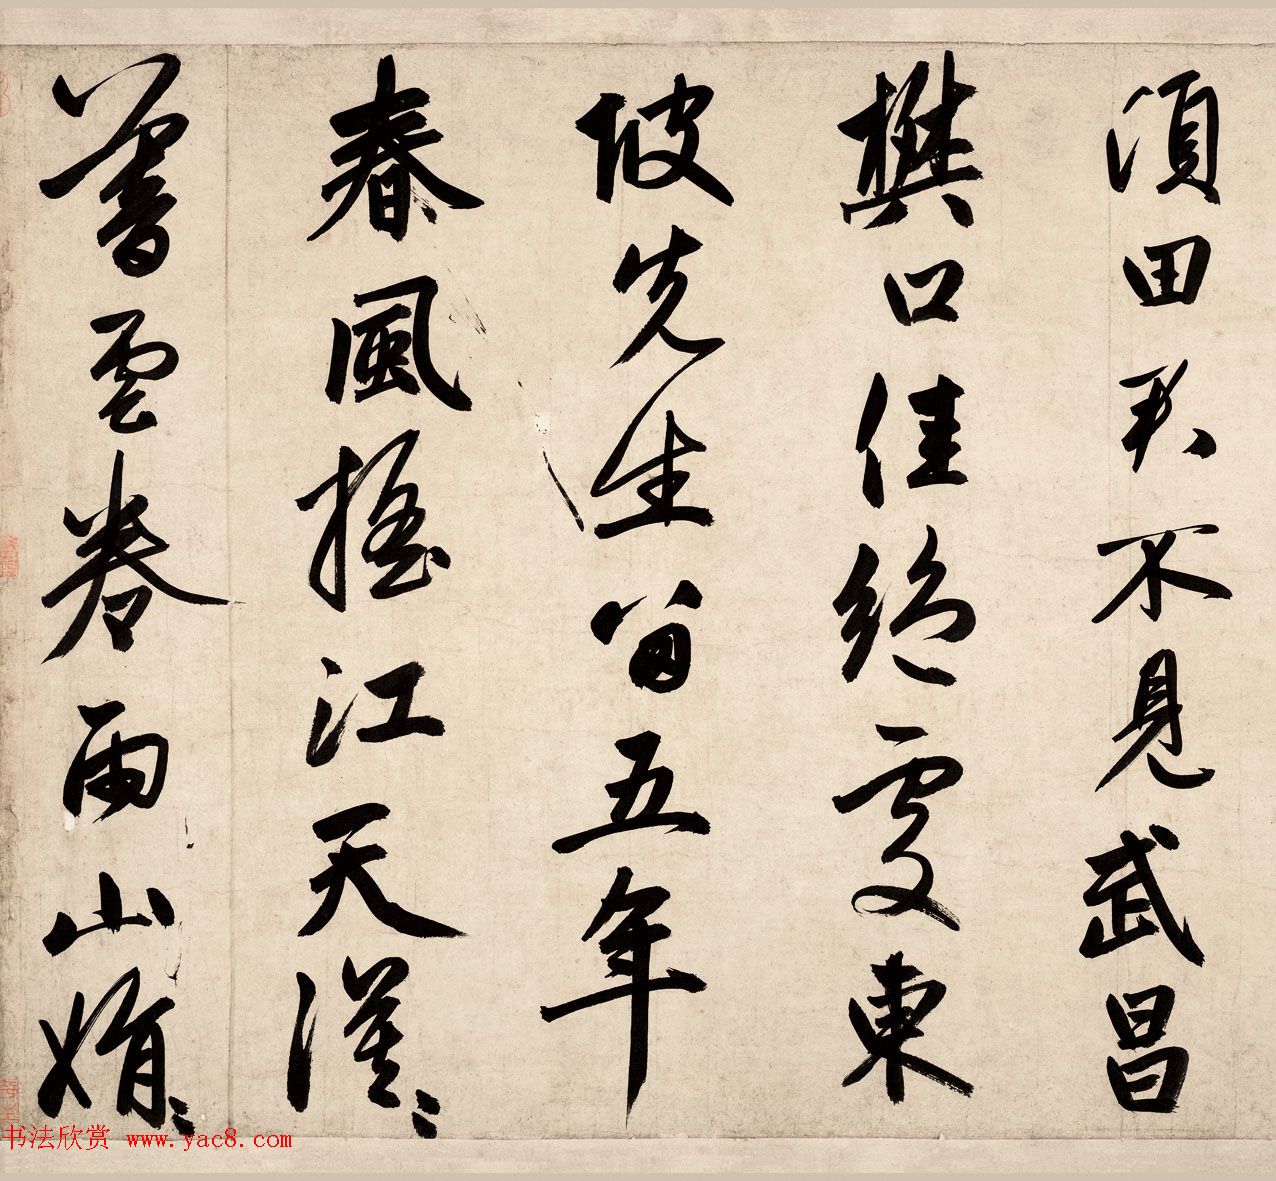 頃田君不見武昌
樊口佳絕處東
坡先生留五年
春風搖江天漠々
暮雲卷雨山娟々
书法欣赏 www.yac8.com